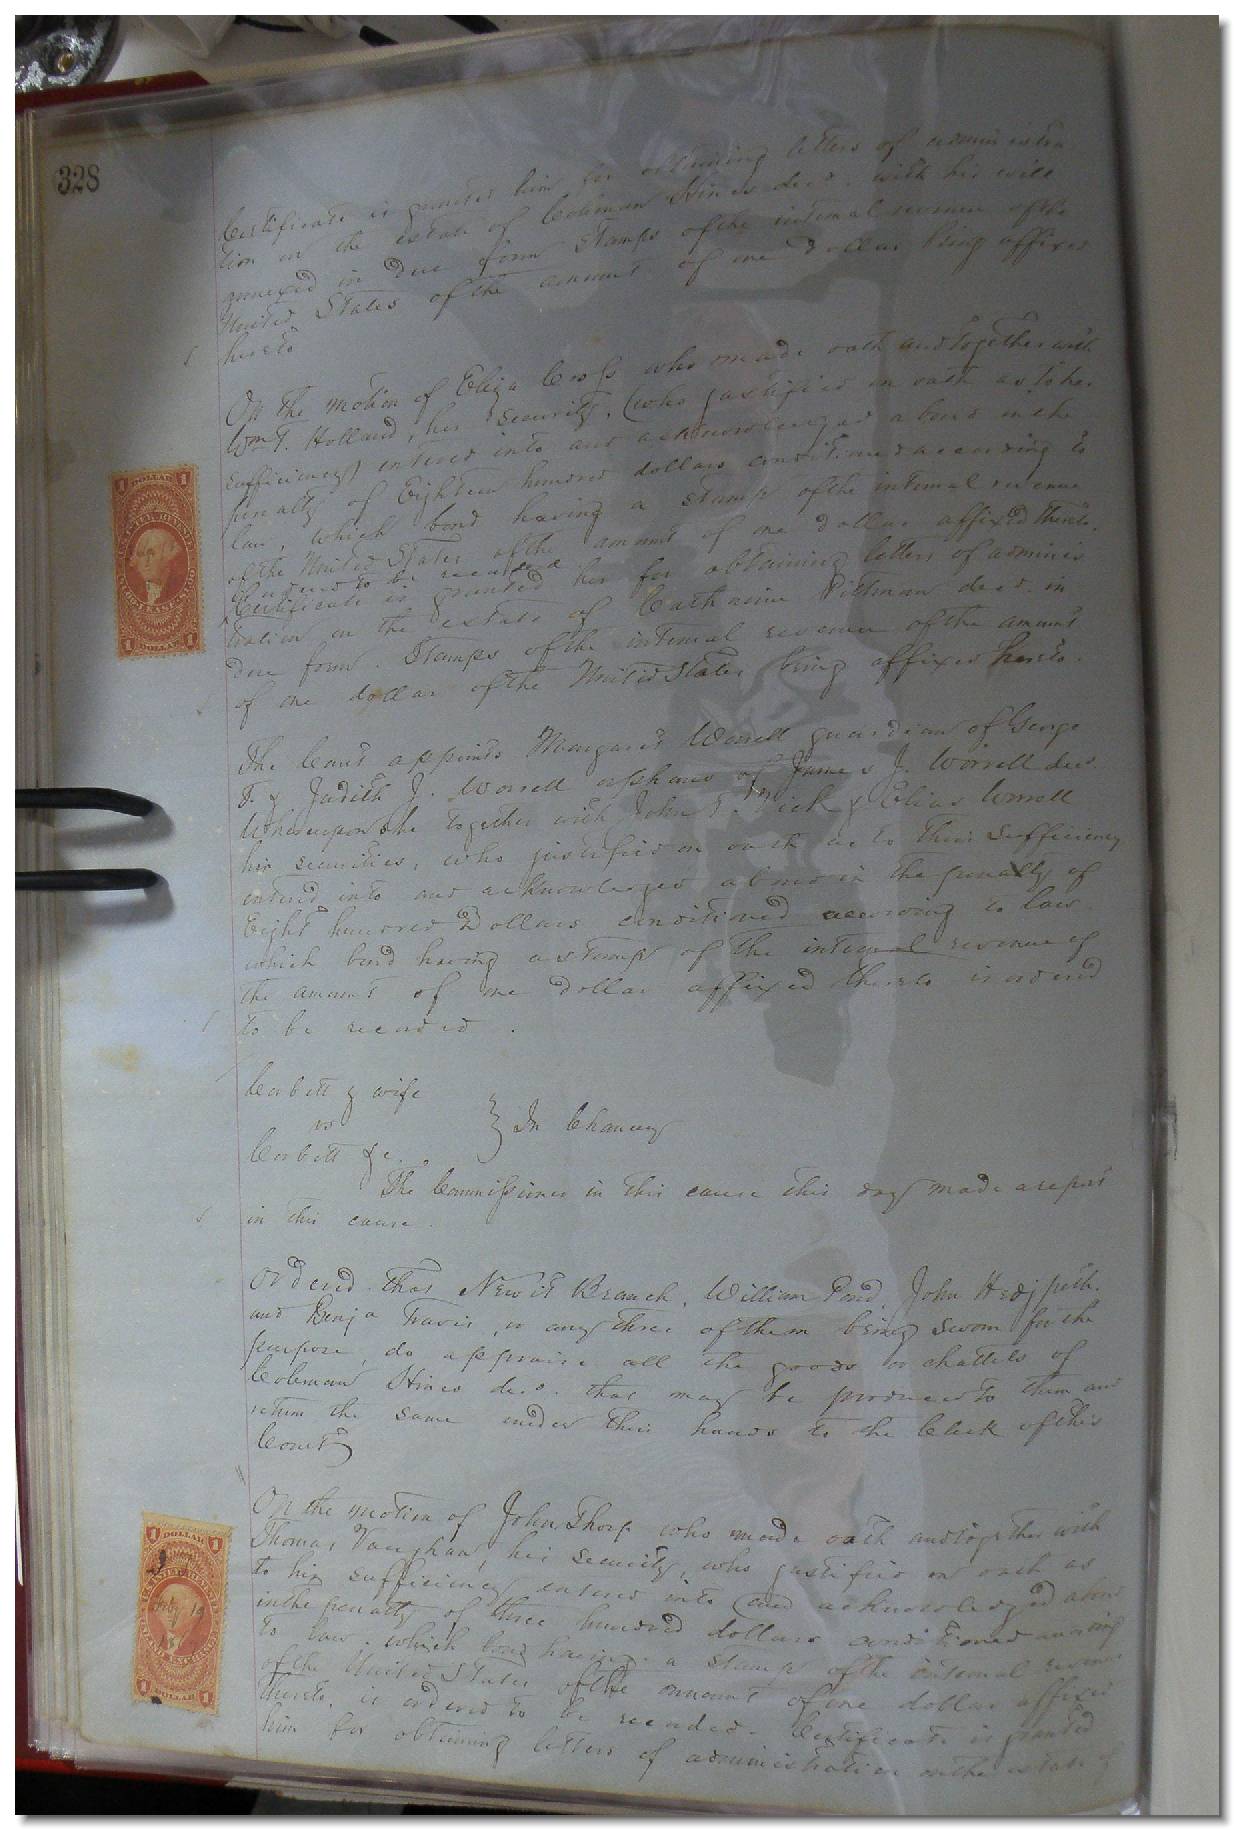 328
Certificate is granted him for obtaining letters of administra
tion on the estate of Coleman Hines decd. with his will
annexed in due form Stamps of the internal revenue of the
United States of the amount of one dollar being affixed
hereto
On the motion of Eliza Cross who made oath and together with
Wm T. Holland, her security, (who justified on oath as to his
sufficiency) entered into and acknowledged a bond in the
penalty of Eighteen hundred dollars conditioned according to
law, which bond having a stamp of the internal revenue
of the United States of the amount of one dollar affixed thereto.
is ordered to be recorded
Certificate is granted her for obtaining letters of adminis
tration on the estate of Catharine Pittman decd. in
due form. Stamps of the internal revenue of the amount
of one dollar of the United States being affixed hereto.
The Court appoints Margaret Worrell guardian of George
T. & Judith J. Worrell orphans of James J. Worrell decd.
Whereupon she together with John E. Dick & Elias Worrell
his securities, who justified on oath as to their sufficiency
entered into and acknowledged a bond in the penalty of
Eight hundred Dollars conditioned according to law.
which bond having a stamp of the internal revenue of
the amount of one dollar affixed thereto is ordered
to be recorded.
Corbett & wife
vs
} In Chancery
Corbett &c.
The Commissioner in this cause this day made a report
in this cause.
Ordered that Newit Branch, William Pond, John Hedgpeth.
and Benja Travis, or any three of them being sworn for the
purpose, do appraise all the goods or chattels of
Coleman Hines decd. that may be produced to them and
return the same under their hands to the Clerk of this
Court
On the motion of John Thorp who made oath and together with
Thomas Vaughan, his security, who justified on oath as
to his sufficiency entered into and acknowledged a bond
in the penalty of three hundred dollars conditioned according
to law. which bond having a stamp of the internal revenue
of the United States of the amount of one dollar affixed
thereto. is ordered to be recorded. Certificate is granted
him for obtaining letters of administration on the estate of
1 DOLLAR 1
1 DOLLAR 1
1 DOLLAR 1
July 19
1 DOLLAR 1